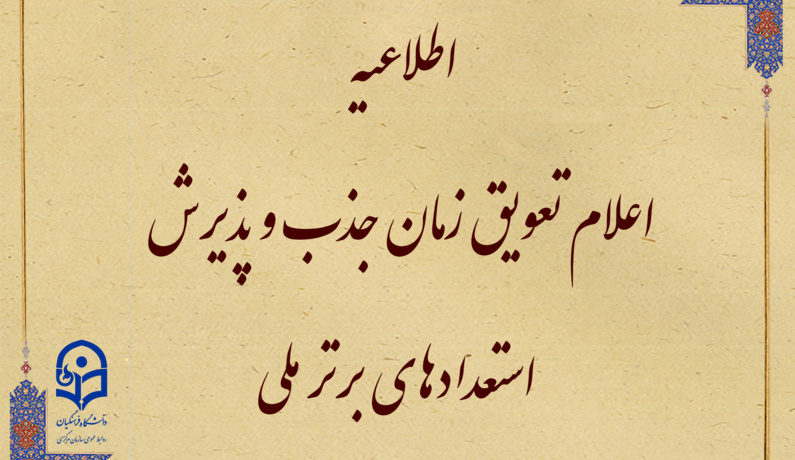 اطلاعیه
اعلام تعویق زمان جذب و پذیرش
استعدادهای برتر ملی
دانشگاه فرهنگیان
روابط عمومی سازمان مرکزی